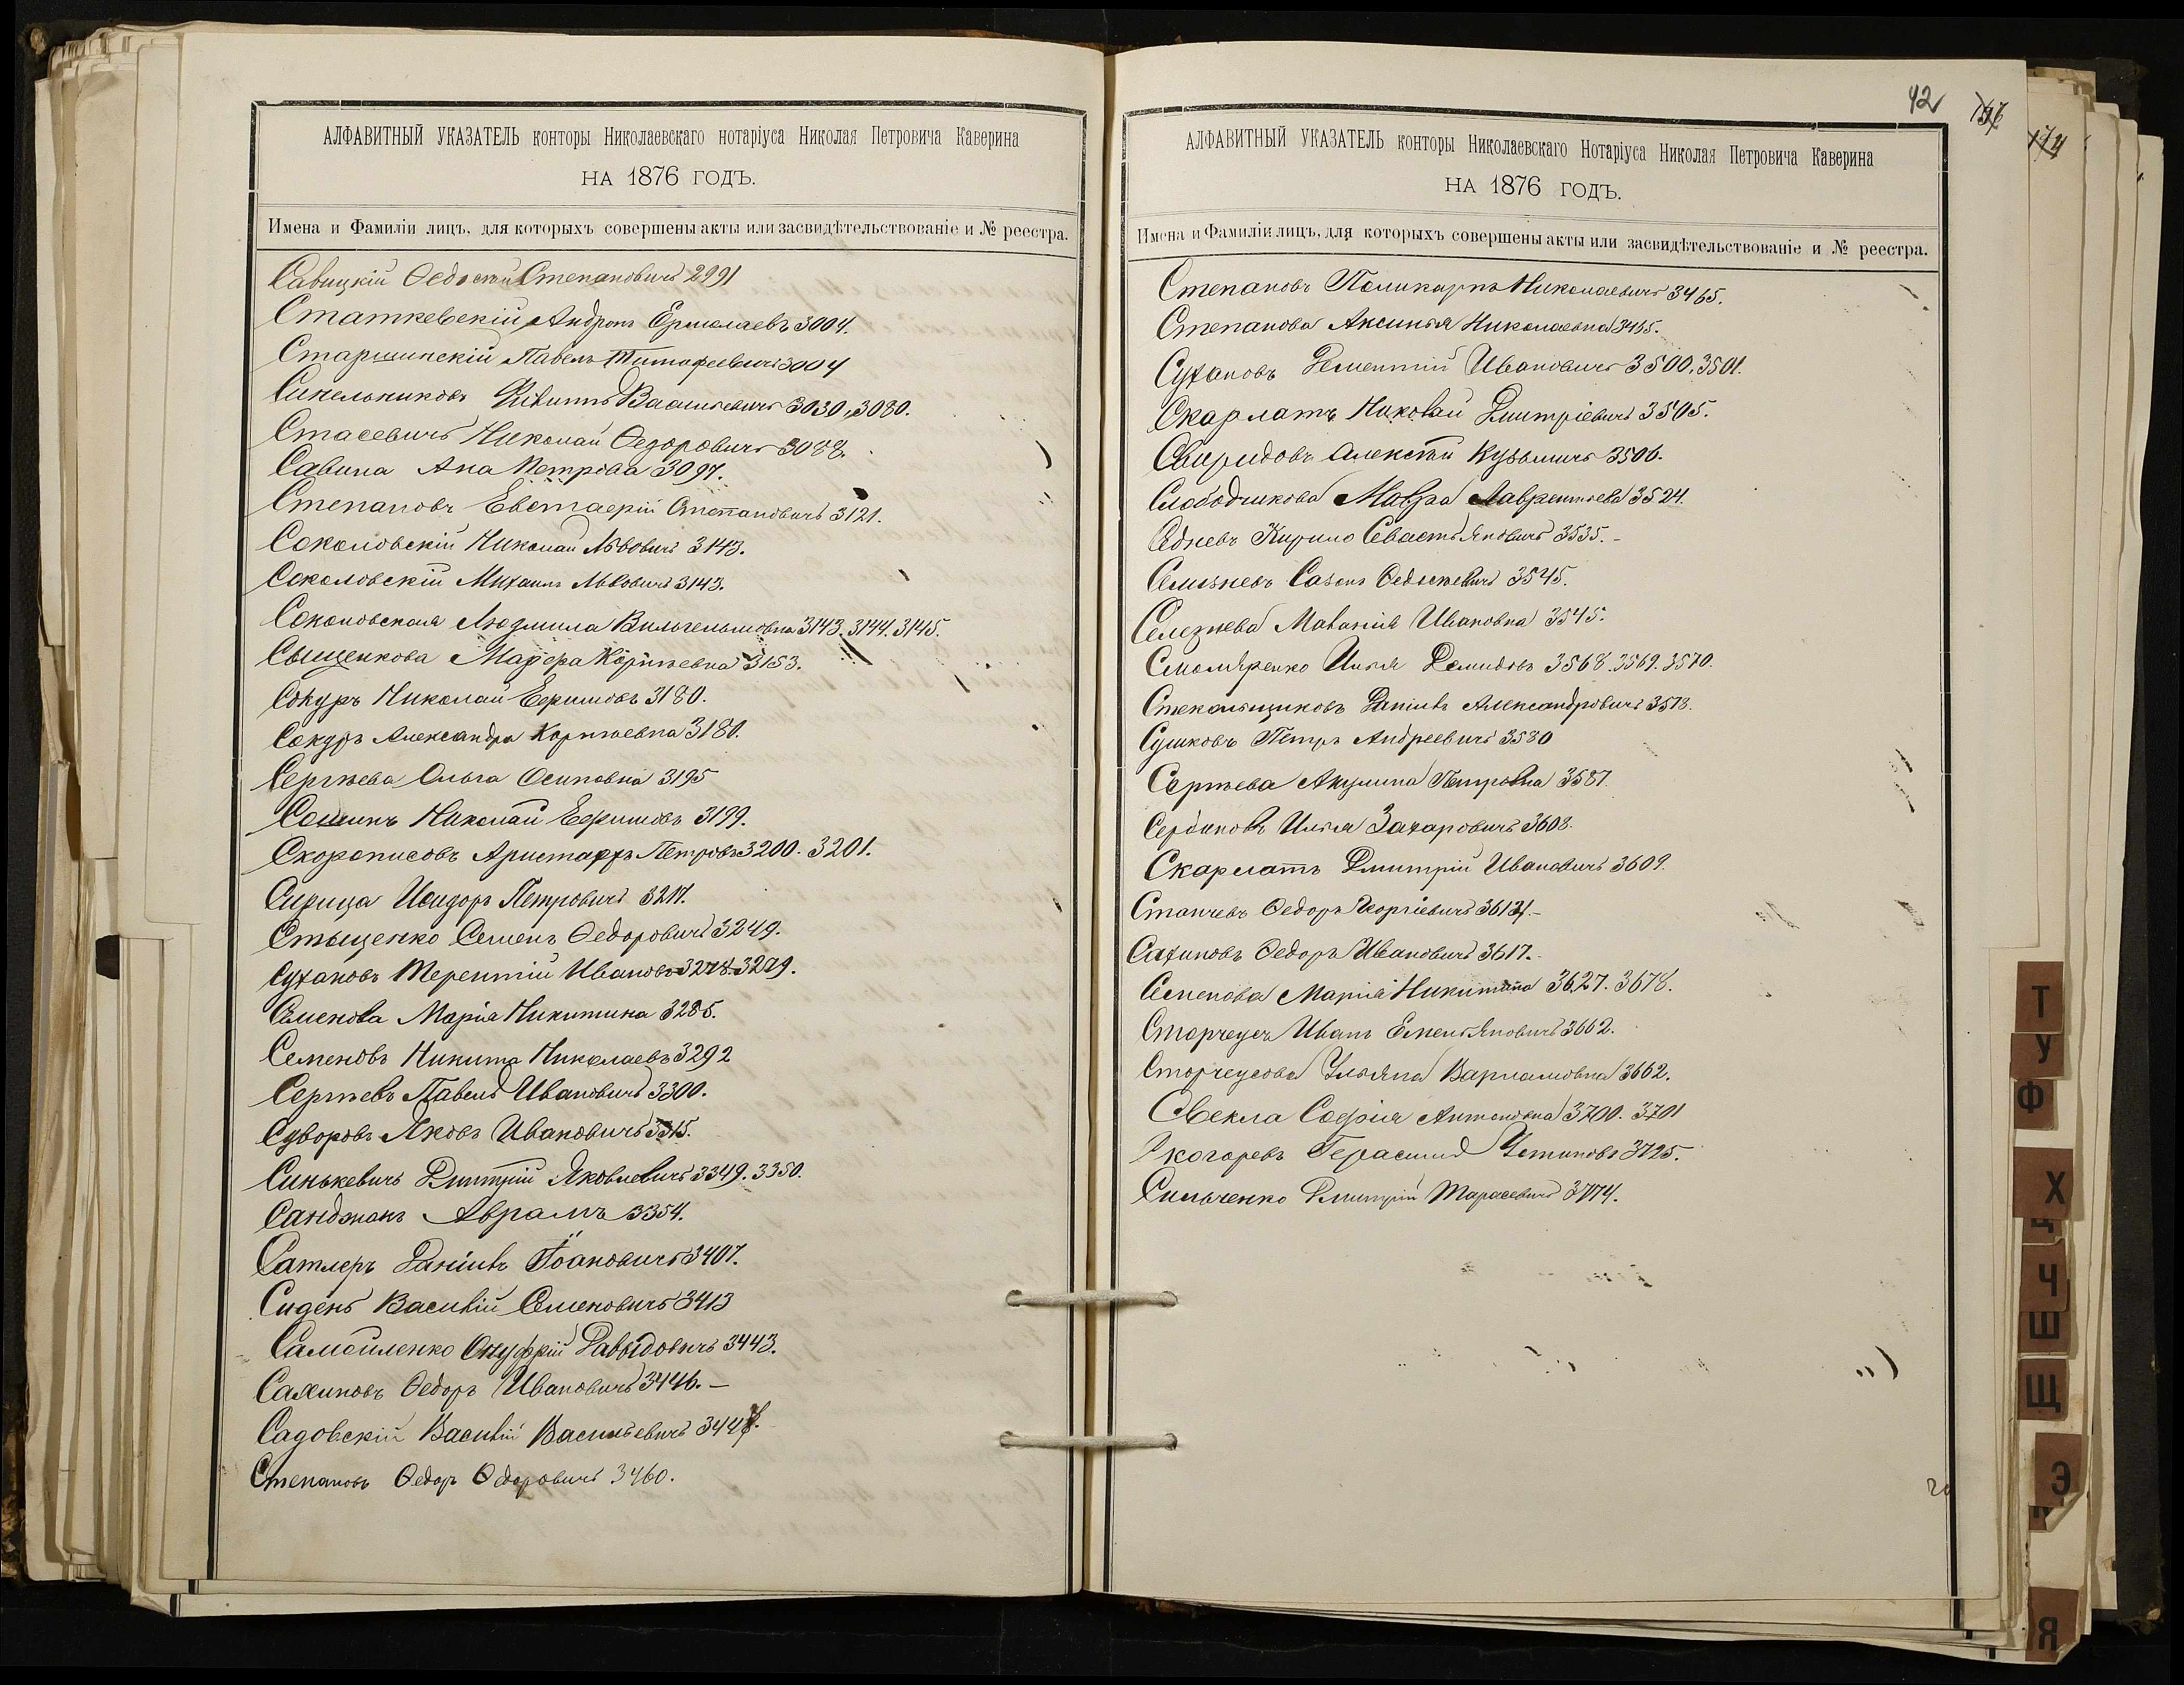 АЛФАВИТНЫЙ УКАЗАТЕЛЬ конторы Николаевскаго нотаріуса Николая Петровича Каверина
НА 1876 ГОДЪ.
Имена и Фамиліи лицъ, для которыхъ совершены акты или засвидѣтельствованіе и № реестра.
Савицкій Ѳедосій Степановичъ 2991
Статкевскій Андронъ Ермолаевъ 3004.
Старшинскій Павелъ Тимофеевичъ 3004
Синельниковъ Филипъ Васильевичъ 3030, 3080.
Стасевичъ Николай Ѳедоровичъ 3088.
Савина Ана Петрова 3097.
Степановъ Евстаерій Степановичъ 3121.
Соколовскій Николай Львовичъ 3143.
Соколовскій Михаилъ Львовичъ 3143.
Соколовская Людмила Вильгельмовна 3143. 3144. 3145.
Сыщенкова Марфа Корнѣевна 3153.
Сокуръ Николай Ефимовъ 3180.
Сокуръ Александра Корнѣевна 3180.
Сергѣева Ольга Осиповна 3195
Сошинъ Николай Ефимовъ 3199.
Скорописовъ Аристарфъ Петровъ 3200. 3201.
Сирица Исидоръ Петровичъ 3217.
Стыценко Семенъ Ѳедоровичъ 3249.
Сухановъ Терентій Ивановъ 3278. 3279.
Семенова Марія Никитина 3285.
Семеновъ Никита Николаевъ 3292
Сергѣевъ Павелъ Ивановичъ 3300.
Суворовъ Яковъ Ивановичъ 3315.
Синькевичъ Дмитрій Яковлевичъ 3349. 3350.
Санджанъ Аврамъ 3354.
Сатлеръ Даніилъ Іоановичъ 3407.
Сидень Василій Семеновичъ 3413
Самойленко Онуфрій Давыдовичъ 3443.
Сахиновъ Ѳедоръ Ивановичъ 3446. –
Садовскій Василій Васильевичъ
Степановъ Ѳедоръ Ѳдоровичъ 3460.
42
АЛФАВИТНЫЙ УКАЗАТЕЛЬ конторы Николаевскаго Нотаріуса Николая Петровича Каверина
НА 1876 ГОДЪ.
Имена и Фамиліи лицъ, для которыхъ совершены акты или засвидѣтельствованіе и № реестра.
Степановъ Поликарпъ Николаевичъ 3465.
Степанова Аксинья Николаевна 3465.
Сухановъ Дементій Ивановичъ 3500. 3501.
Скарлатъ Николай Дмитріевичъ 3505.
Свиридовъ Алексѣй Кузьмичъ 3506.
Слободчикова Мавра Лаврентьева 3524.
Кирило Севастьяновичъ 3535. –
Селезневъ Сазонъ Ѳедосѣевичъ 3545.
Селезнева Маланія Ивановна 3545.
Смоляренко Илья Демидовъ 3568. 3569. 3570.
Стекольщиковъ Даніилъ Александровичъ 3578.
Сушковъ Петръ Андреевичъ 3580
Сергѣева Акулина Петровна 3587.
Сербиновъ Илья Захаровичъ 3608.
Скарлатъ Дмитрій Ивановичъ 3609.
Станчевъ Ѳедоръ Георгіевичъ
Сахиновъ Ѳедоръ Ивановичъ 3617.
Семенова Марія Никитина 3627. 3678.
Сторчеусъ Иванъ Емельяновичъ 3662.
Сторчеусова Ульяна Варламовна 3662.
Свекла Софія Антоновна 3700. 3701
Скогоревъ Герасимъ Устиновъ 3725.
Сильченко Дмитрій Тарасевичъ 3774.
Т
У
Ф
Х
Ц
Ч
Ш
Щ
Э
Я